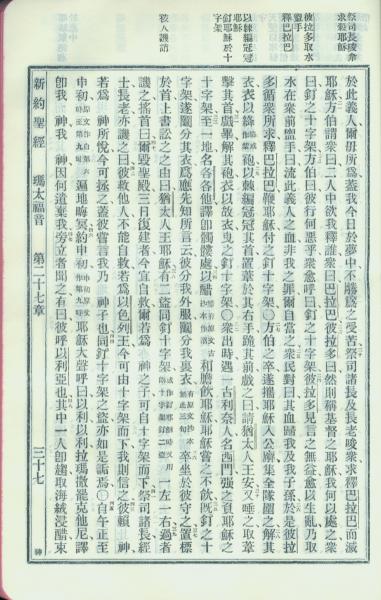 祭司長唆衆
求殺耶穌
彼拉多取水
盥手
釋巴拉巴
以棘編冕冠
耶穌
釘耶穌於十
字架
被人譏誚
於此義人爾毋所爲蓋我今日於夢中不勝爲之受苦祭司諸長及長老唆衆求釋巴拉巴而滅
耶穌方伯謂衆曰二人中欲我釋誰衆曰巴拉巴彼拉多曰然則稱基督之耶穌我何以處之衆
曰釘之十字架方伯曰彼行何惡乎衆愈呼曰釘之十字架彼拉多見言之無益愈以生亂乃取
水在衆前盥手曰流此義人之血非我之罪爾自當之衆民對曰其血歸我及我子孫於是彼拉
多循衆所求釋巴拉巴鞭耶穌付之釘十字架〇方伯之卒遂攜耶穌入公廨集全隊圍之解其
衣衣以絳袍以棘編冕冠其首置葦於其右手跪其前戲之曰請猶太人王安又唾之取葦
擊其首戲畢解其袍衣以故衣曳之釘十字架〇衆出時遇一古利奈人名西門強之負耶穌之
十字架至一地名各各他譯卽髑髏處以醋和膽飲耶穌耶穌嘗之不飲旣釘之十
字架遂鬮分其衣爲應先知所言云彼分我外服鬮分我裏衣卒坐於彼守之置標
於首上書訟之之由曰猶太人王耶穌有二盜同釘十字架一左一右過者
譏之搖首曰爾毀聖殿三日復建者今宜自救爾若爲 神之子可自十字架而下祭司諸長經
士長老亦譏之曰彼救他人不能自救若爲以色列王今可由十字架而下我則信之彼賴 神
若爲 神所悅今可拯之蓋彼嘗言我乃 神子也同釘十字架之盜亦如是詬焉〇自午正至
申初徧地晦冥約申初耶穌大聲呼曰以利以利拉瑪撒罷克他尼譯
卽我 神我 神因何遺棄我旁立者聞之有曰彼呼以利亞也其中一人卽趨取海絨浸醋束
新約聖經 瑪太福音 第二十七章 三十七